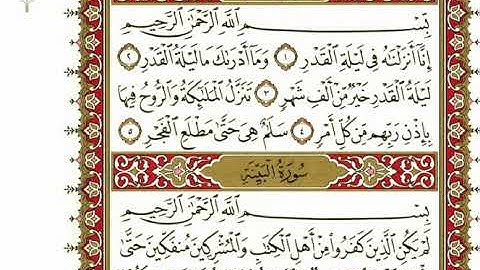 بِسْمِ اللَّهِ الرَّحْمَٰنِ الرَّحِيمِ
إِنَّا أَنزَلْنَاهُ فِي لَيْلَةِ الْقَدْرِ ١ وَمَا أَدْرَاكَ مَا لَيْلَةُ الْقَدْرِ ٢
لَيْلَةُ الْقَدْرِ خَيْرٌ مِّنْ أَلْفِ شَهْرٍ ٣ تَنَزَّلُ الْمَلَائِكَةُ وَالرُّوحُ فِيهَا
بِإِذْنِ رَبِّهِم مِّن كُلِّ أَمْرٍ ٤ سَلَامٌ هِيَ حَتَّىٰ مَطْلَعِ الْفَجْرِ ٥
سُورَةُ الْبَيِّنَةِ
بِسْمِ اللَّهِ الرَّحْمَٰنِ الرَّحِيمِ
لَمْ يَكُنِ الَّذِينَ كَفَرُوا مِنْ أَهْلِ الْكِتَابِ وَالْمُشْرِكِينَ مُنفَكِّينَ حَتَّىٰ